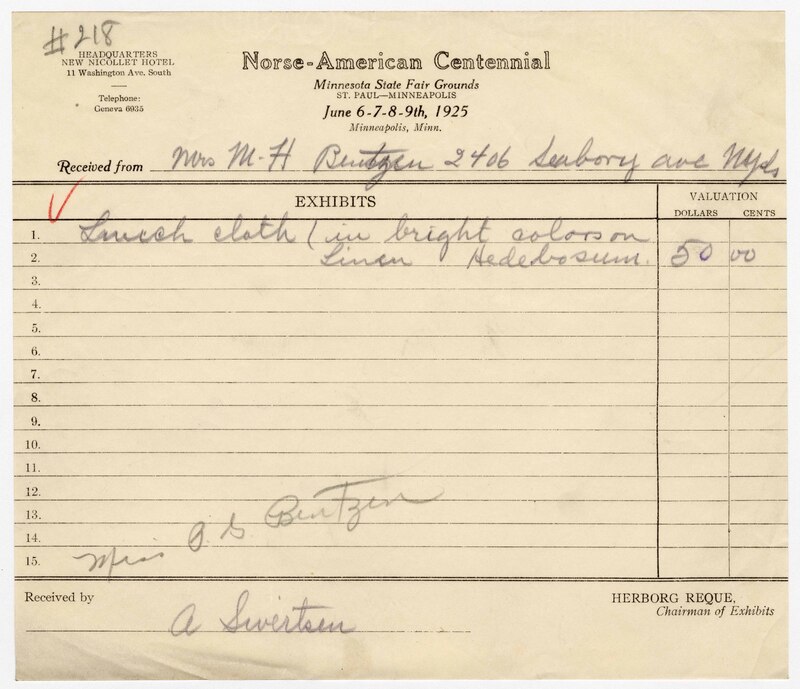 #218
HEADQUARTERS
NEW NICOLLET HOTEL
11 Washington Ave. South
Telephone:
Geneva 6935
Norse-American Centennial
Minnesota State Fair Grounds
ST. PAUL—MINNEAPOLIS
June 6-7-8-9th, 1925
Minneapolis, Minn.
Received from Mrs M-H Bentzen 2406 Seabory ave Mpls
EXHIBITS
VALUATION
DOLLARS CENTS
1. Lunch cloth (in bright colors on
2. Linen Hedebosum. 50 00
3.
4.
5.
6.
7.
8.
9.
10.
11.
12.
13.
14.
15. Miss B G Bentzen
Received by A Sivertsen
HERBORG REQUE,
Chairman of Exhibits